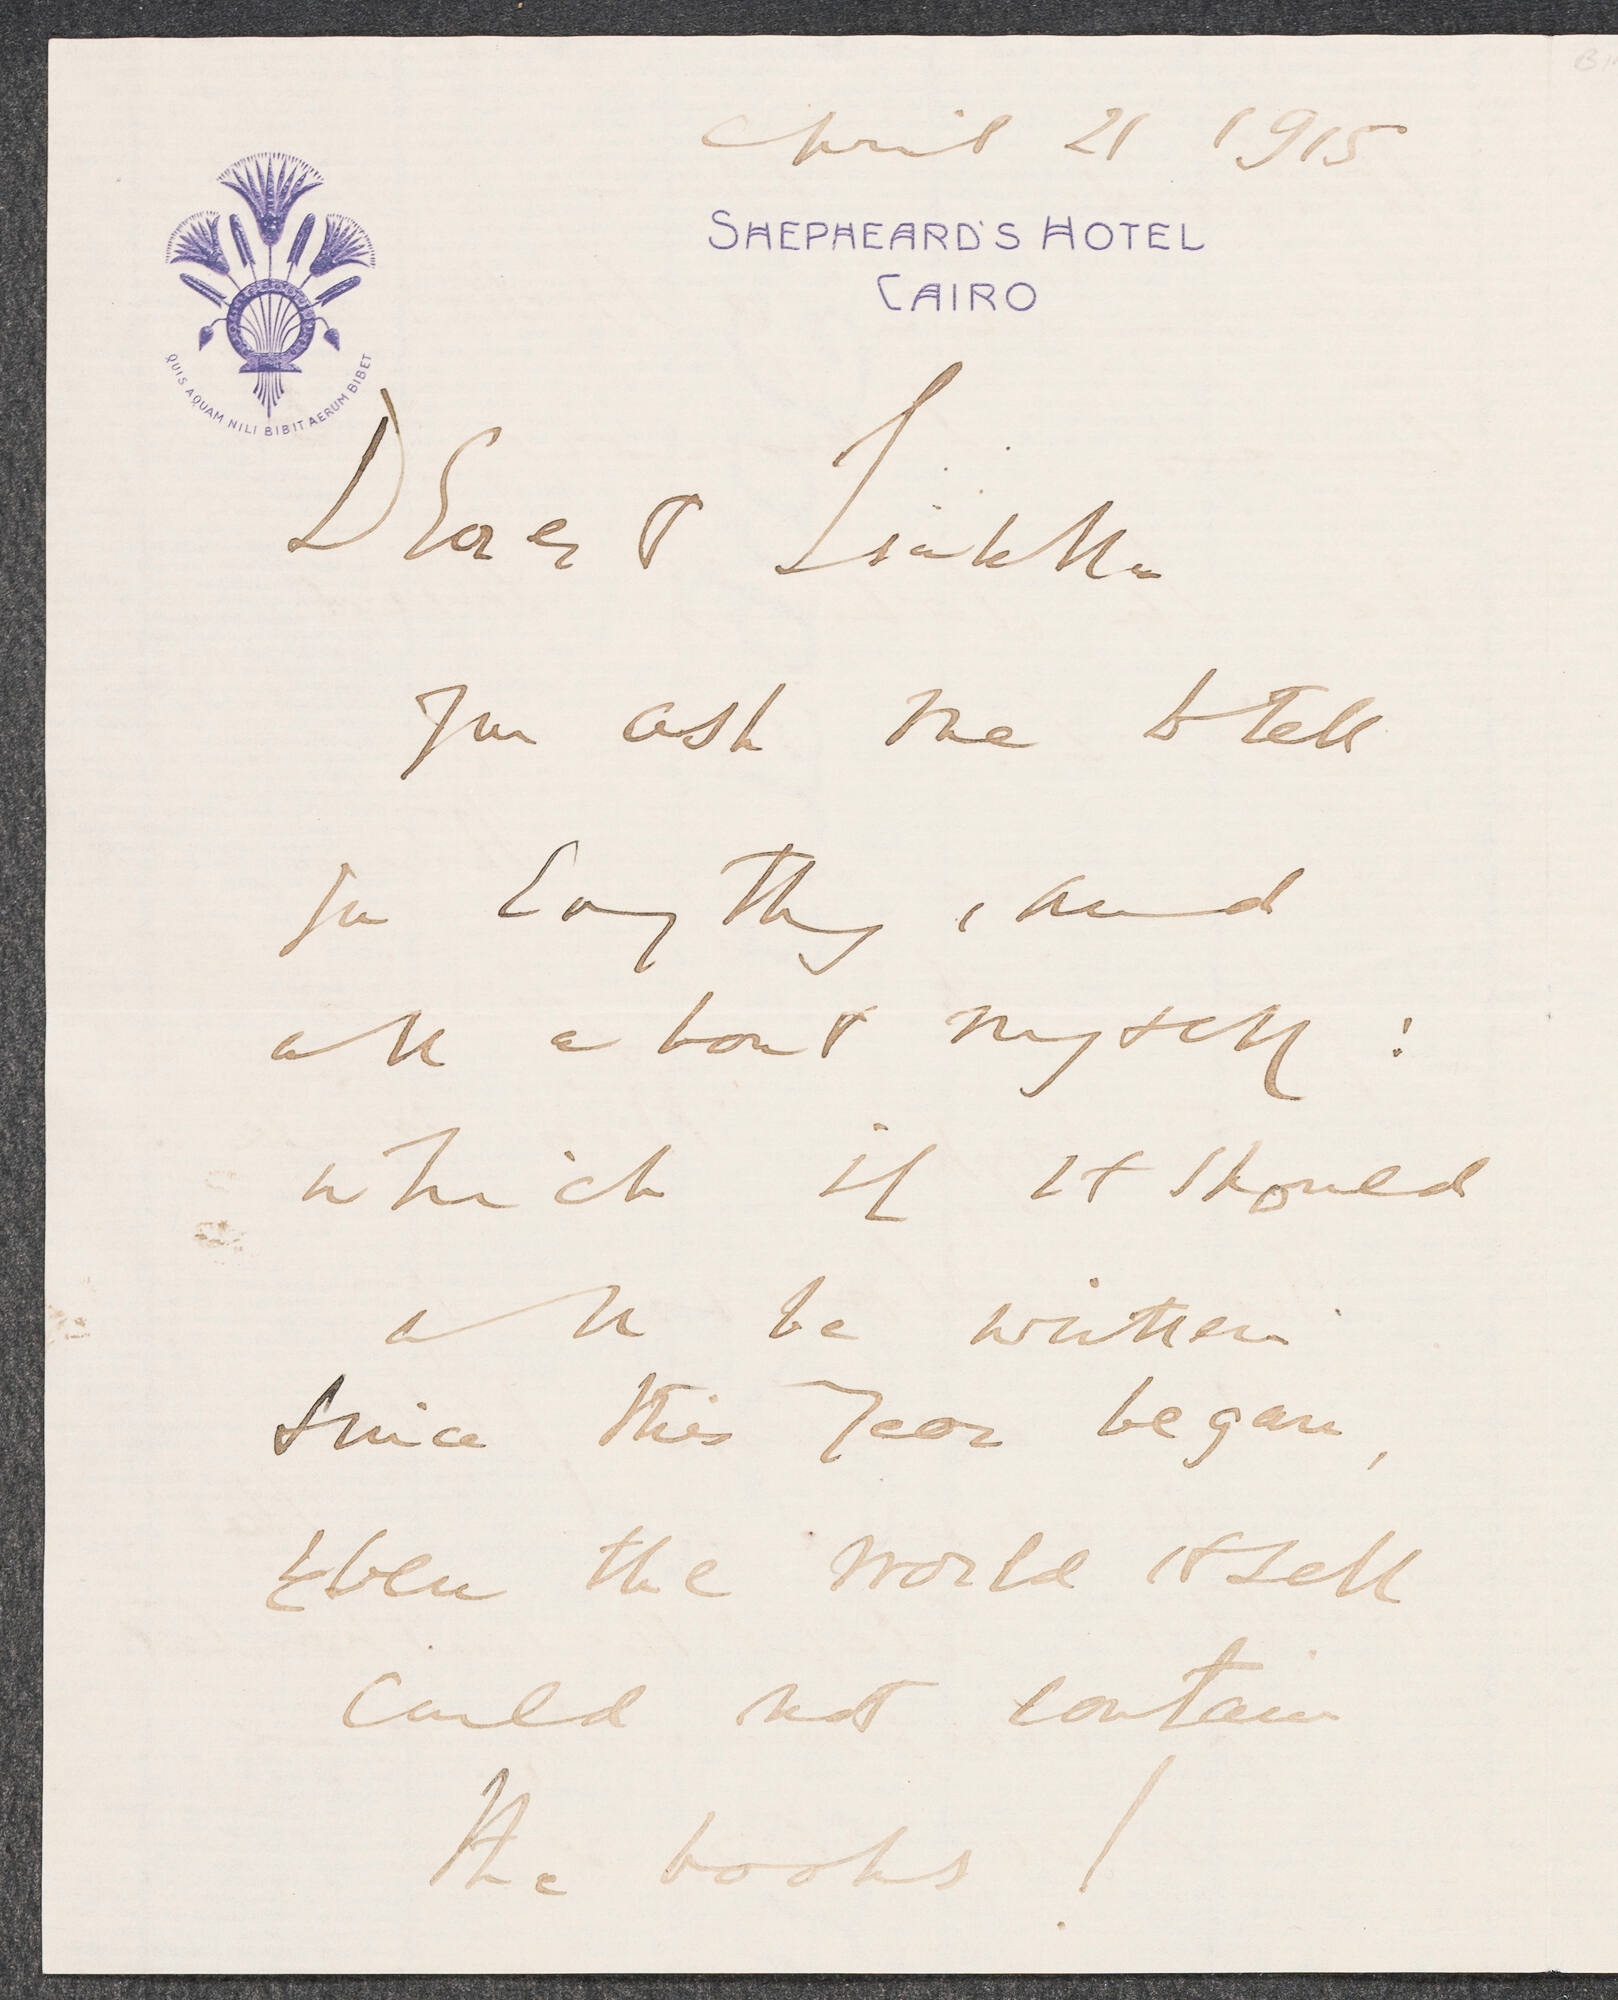 April 21 1915
SHEPHEARD'S HOTEL
CAIRO
QUIS AQUAM NILI BIBIT AERUM BIBET
Dearest Isabella
You ask me to tell
you Everything, and
all about myself:
which if it should
all be written
since this Year began,
Even the world itself
could not contain
the books!